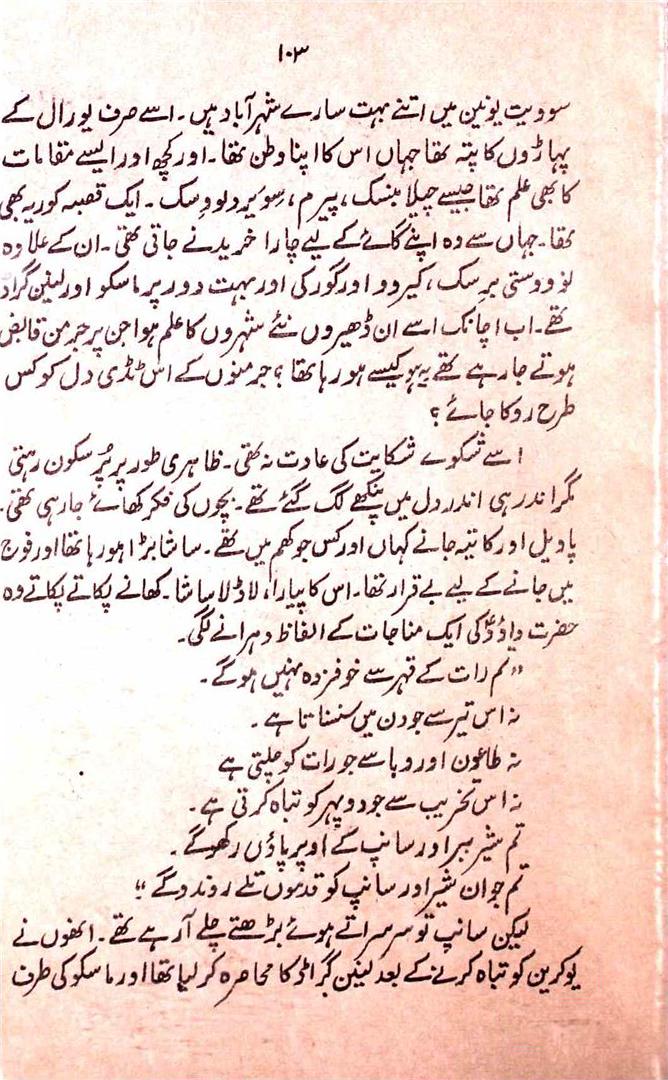 ۱۰۳
سوویت یونین میں اتنے بہت سارے شہر آباد ہیں۔ اسے صرف یورال کے
پہاڑوں کا پتہ تھا جہاں اس کا اپنا وطن تھا۔ اور کچھ اور ایسے مقامات
کا بھی علم تھا جیسے چیلا بنسک، پیرم، سویردلووسک۔ ایک قصبہ کوریہ بھی
تھا۔ جہاں سے وہ اپنے گائے کے لیے چارا خریدنے جاتی تھی۔ ان کے علاوہ
نووستی برسک، کیروو اور گورکی اور بہت دور پر ماسکو اور لینن گراڈ
تھے۔ اب اچانک اسے ان ڈھیروں نئے شہروں کا علم ہوا جن پر جرمن قابض
ہوتے جا رہے تھے یہ ہو کیسے ہو رہا تھا؟ جرمنوں کے اس ٹڈی دل کو کس
طرح روکا جائے؟
اسے شکوے شکایت کی عادت نہ تھی۔ ظاہری طور پر پُر سکون رہتی
مگر اندر ہی اندر دل میں پنکھے لگ گئے تھے۔ بچوں کی فکر کھائے جا رہی تھی۔
پاویل اور کاتیہ جانے کہاں اور کس جوکھم میں تھے۔ ساشا بڑا ہو رہا تھا اور فوج
میں جانے کے لیے بے قرار تھا۔ اس کا پیارا، لاڈلا ساشا۔ کھانے پکاتے پکاتے وہ
حضرت داؤدؑ کی ایک مناجات کے الفاظ دہرانے لگی۔
”تم رات کے قہر سے خوفزدہ نہیں ہو گے۔
نہ اس تیر سے جو دن میں سنسناتا ہے۔
نہ طاعون اور وبا سے جو رات کو چلتی ہے
نہ اس تخریب سے جو دوپہر کو تباہ کرتی ہے۔
تم شیر ببر اور سانپ کے اوپر پاؤں رکھو گے۔
تم جوان شیر اور سانپ کو قدموں تلے روندو گے“
لیکن سانپ تو سرسراتے ہوئے بڑھتے چلے آ رہے تھے۔ انھوں نے
یوکرین کو تباہ کرنے کے بعد لینن گراڈ کا محاصرہ کر لیا تھا اور ماسکو کی طرف